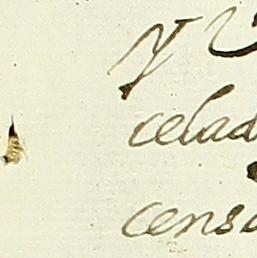 y
celad
censu